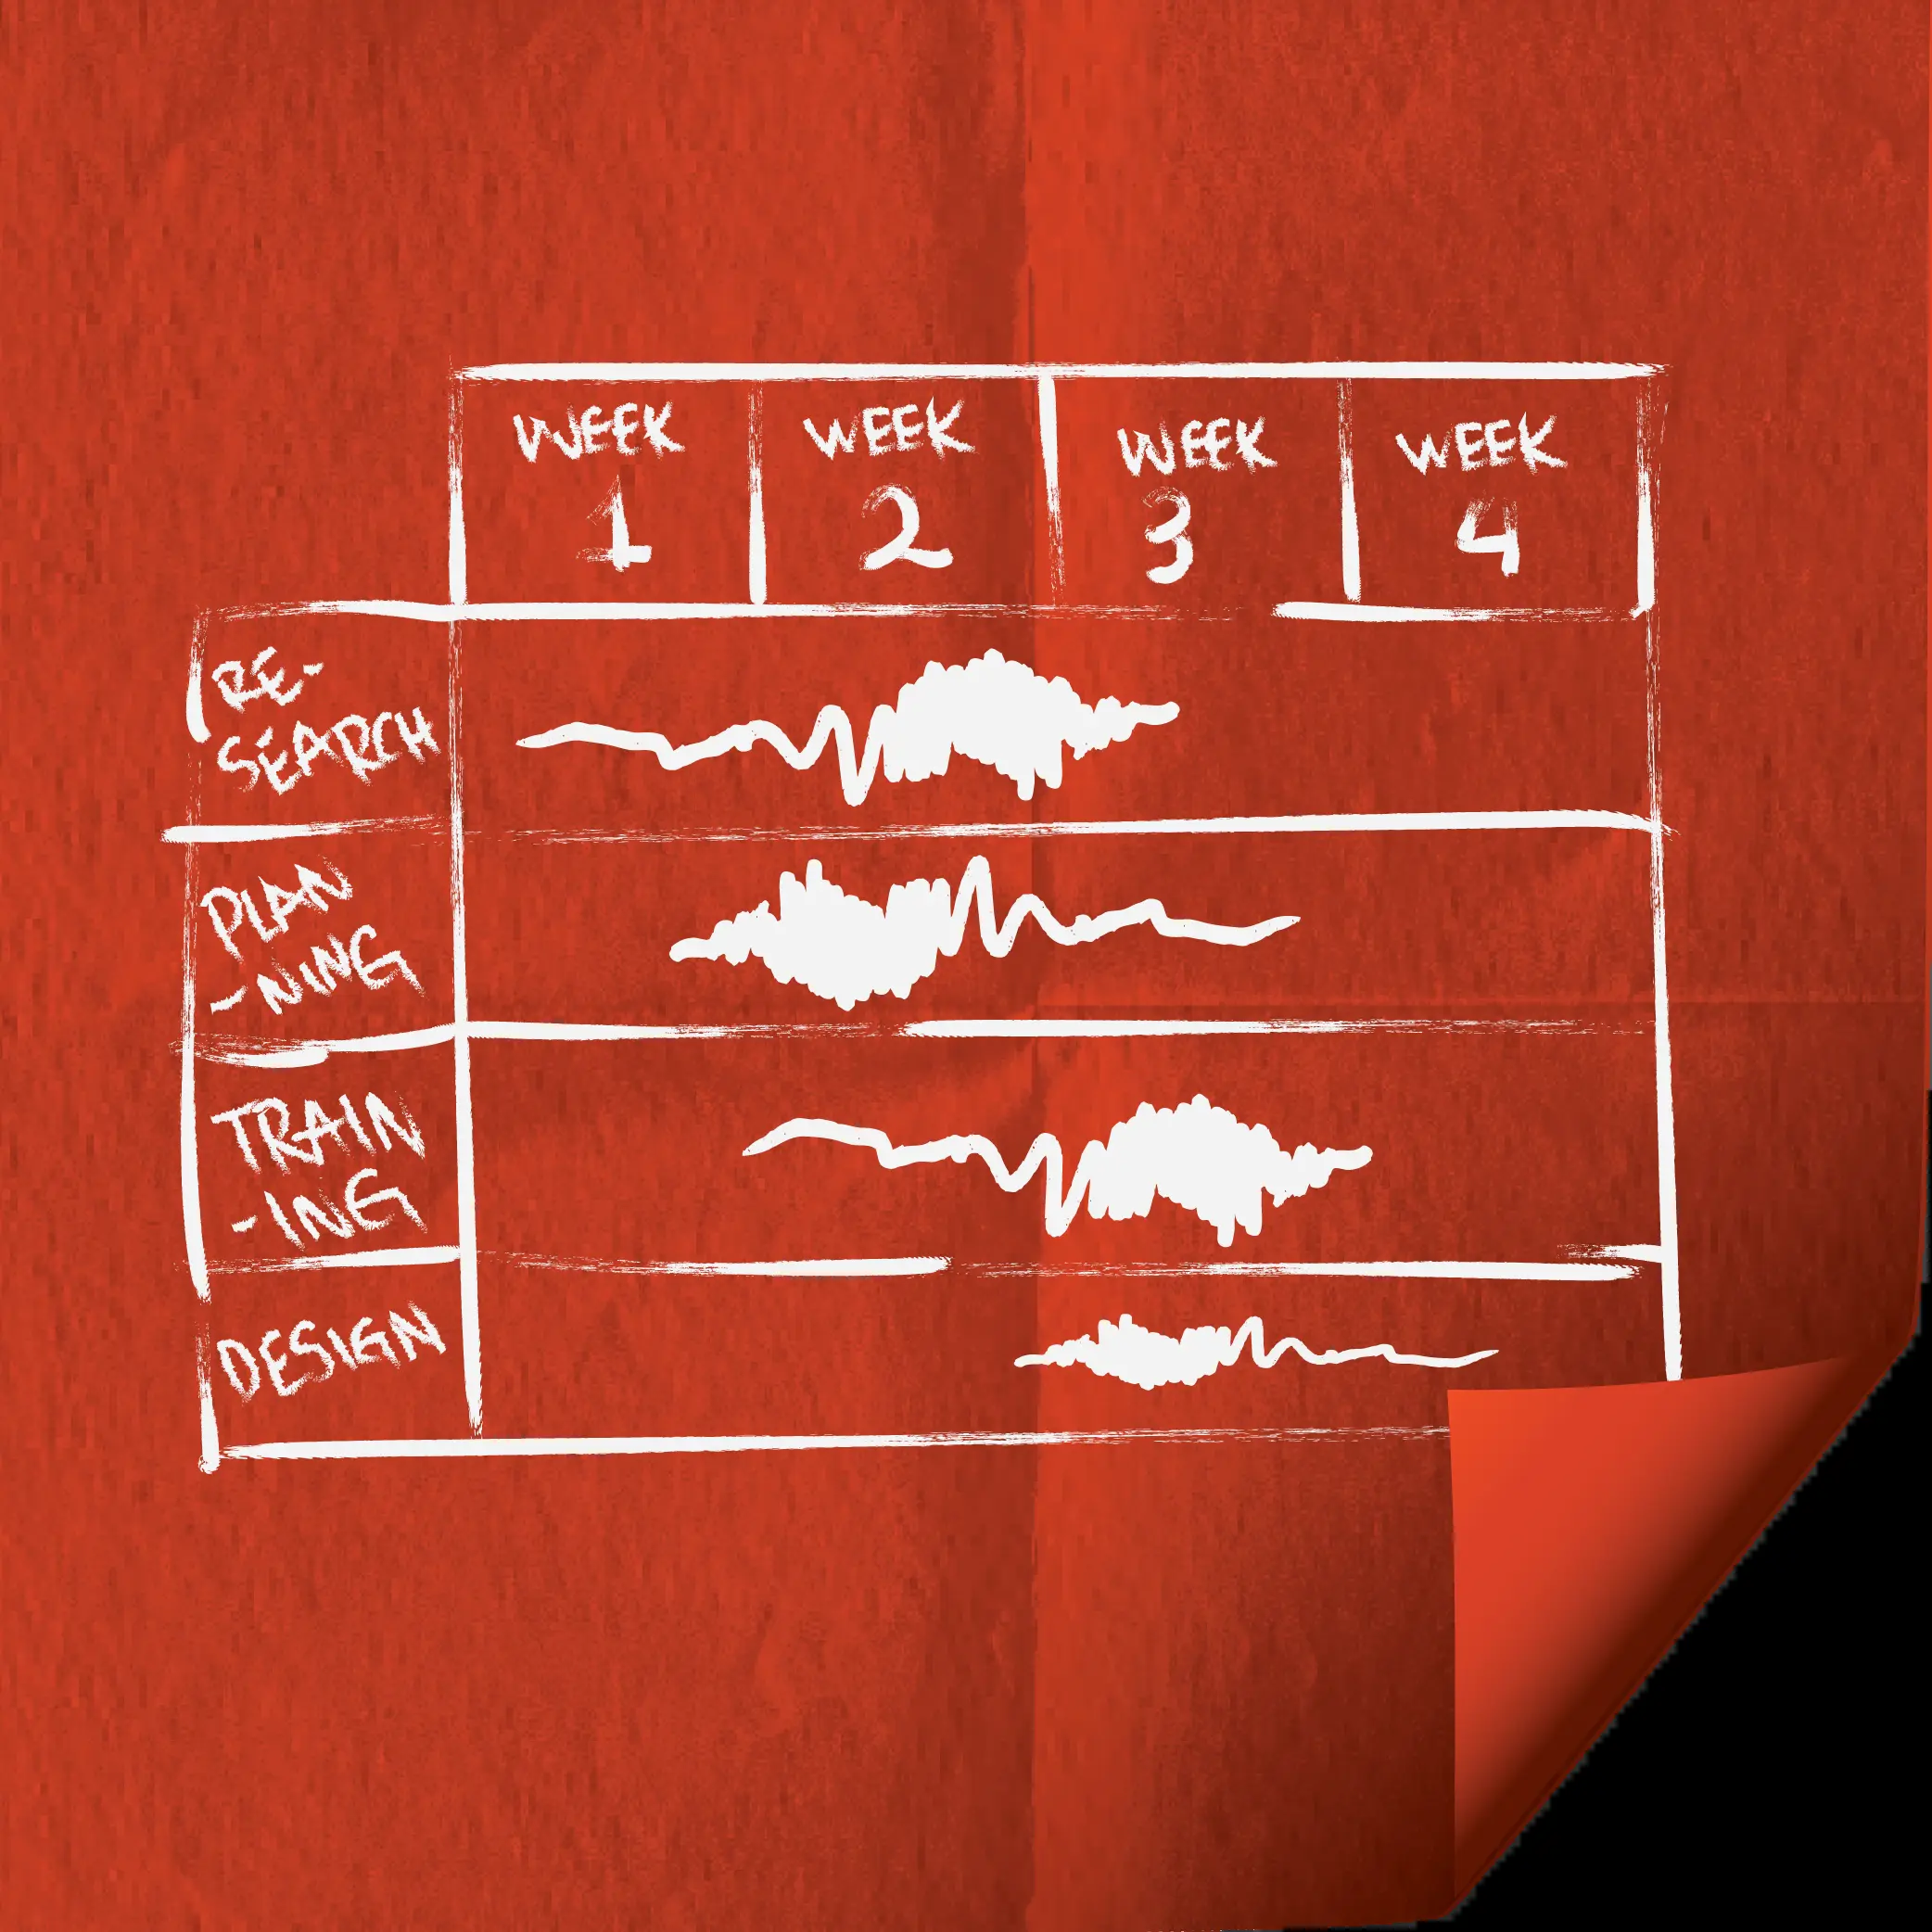 WEEK WEEK WEEK WEEK
1 2 3 4
RE-
SEARCH
PLAN
-NING
TRAIN
-ING
DESIGN